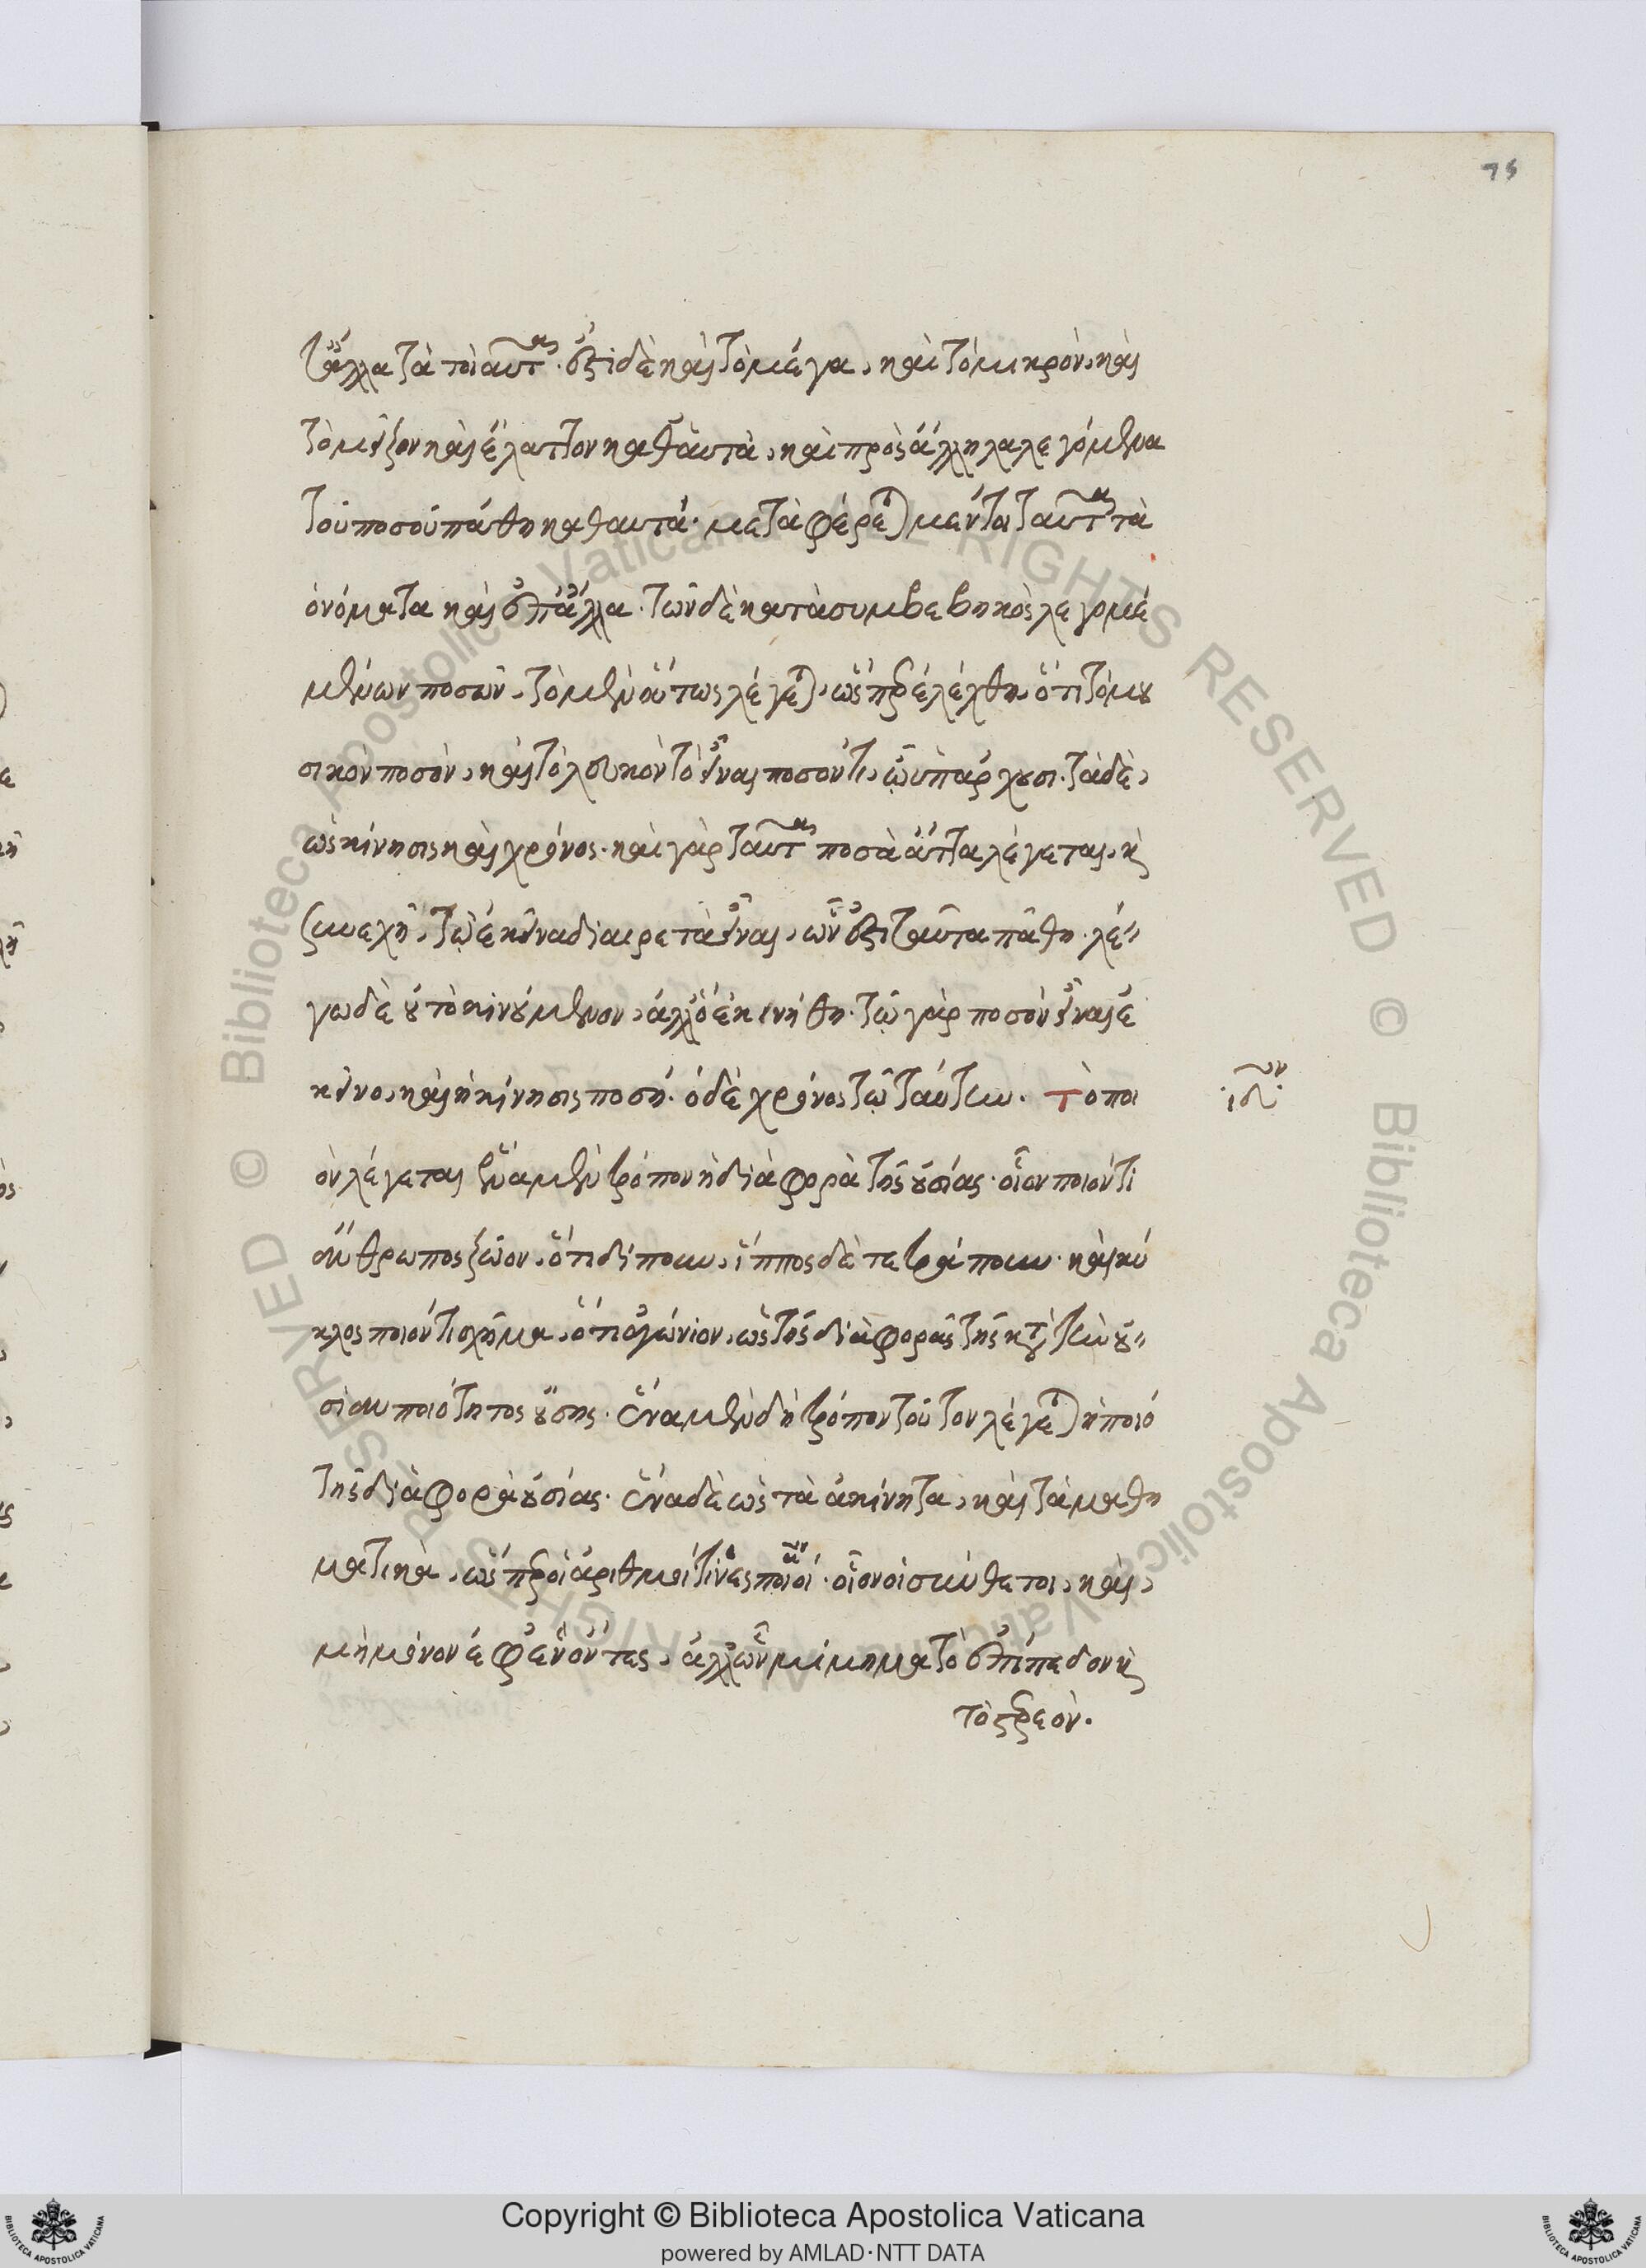 75
τἄλλα τὰ τοιαῦτα. ἔστι δὲ καὶ τὸ μέγα, καὶ τὸ μικρὸν, καὶ
τὸ μεῖζον καὶ ἔλαττον καθ' αὑτὰ, καὶ πρὸς ἄλληλα λεγόμενα
τοῦ ποσοῦ πάθη καθ' αυτά. μεταφέρεται μέντοι ταῦτα τὰ
ὀνόματα καὶ ἐπ' ἄλλα. τῶν δὲ κατὰ συμβεβηκὸς λεγομέ
μένων ποσῶν, τὸ μὲν οὕτως λέγεται, ὥσπερ ἐλέχθη, ὅτι τὸ μου
σικὸν ποσὸν, καὶ τὸ λευκὸν τὸ εἶναι ποσόν τι, ᾧ ὑπάρχουσι. τὰ δὲ,
ὡς κίνησις καὶ χρόνος. καὶ γὰρ ταῦτα ποσὰ ἄττα λέγεται, καὶ
συνεχῆ, τῷ ἐκεῖνα διαιρετὰ εἶναι, ὧν ἐστι ταῦτα πάθη. λέ
γω δὲ οὐ τὸ κινούμενον, ἀλλ' ὃ ἐκινήθη. τῷ γὰρ ποσὸν εἶναι ἐ
κεῖνο, καὶ ἡ κίνησις ποσή. ὁ δὲ χρόνος τῷ ταύτην. Τὸ ποι
ιδ.ον
ὸν λέγεται ἕνα μὲν τρόπον ἡ διαφορὰ τῆς οὐσίας. οἷον ποιόν τι
ἄνθρωπος ζῷον, ὅτι δίπουν, ἵππος δὲ τετράπουν. καὶ κύ
κλος ποιόν τι σχῆμα, ὅτι ἀγώνιον, ὡς τῆς διαφορᾶς τῆς κατὰ τὴν οὐ
σίαν ποιότητος οὔσης. ἕνα μὲν δὴ τρόπον τοῦτον λέγεται ἡ ποιό
της διαφορὰ οὐσίας. ἕνα δὲ ὡς τὰ ἀκίνητα, καὶ τὰ μαθη
ματικὰ, ὥσπερ οἱ ἀριθμοί τινες ποιοί. οἷον οἱ σύνθετοι, καὶ,
μὴ μόνον ἐφ' ἓν ὄντες, ἀλλ' ὧν μίμημα τὸ ἐπίπεδον καὶ
τὸ στερεόν.
© Biblioteca Apostolica Vaticana ALL RIGHTS RESERVED © Biblioteca Apostolica Vaticana ALL RIGHTS RESERVED
Copyright © Biblioteca Apostolica Vaticana
powered by AMLAD·NTT DATA
BIBLIOTECA APOSTOLICA VATICANA
BIBLIOTECA APOSTOLICA VATICANA